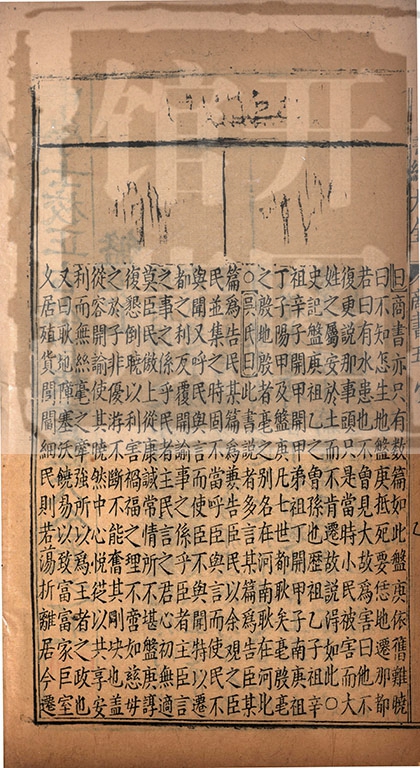 曰商書亦只有數篇如此盤庚依舊難曉
曰不知怎生地盤庚抵死要恁地遷那都
若曰有水患也不曾見大故爲害曰他不
復更說那事頭只是當時小民被害而大
姓之屬安於土而不肯遷故說得如此○
史記盤庚祖乙之曾孫也歷祖乙子祖辛
祖辛子開甲開甲子南庚祖
丁子陽甲及盤庚凡七世都耿矣亳殷亳
之殷地殷者亳之別名在河南耿在河北
○呂氏曰此書說者多以上篇爲告臣某
篇爲告民某篇爲兼告臣民以余觀之臣
民並集之時固當呼臣與言而使民不
與聞又呼民與言而使臣不與聞特以遷
都之利反覆開諭事之係乎臣者主臣言
之事之係乎民者主民言之君心初無適
莫臣民傲上從康誠常情所不堪盤庚諄
復懇倒曉以利害禍福之不啻如慈母
之於子非優游不斷不能奮其剛決也蓋
從容開諭使其曉然中心悅從以共享安
利而無絲毫之牽強所以爲王者之政也
又曰耿地障塞沃饒易以致富富家巨室
久居殖貨閭閻細民則若蕩折離居今遷